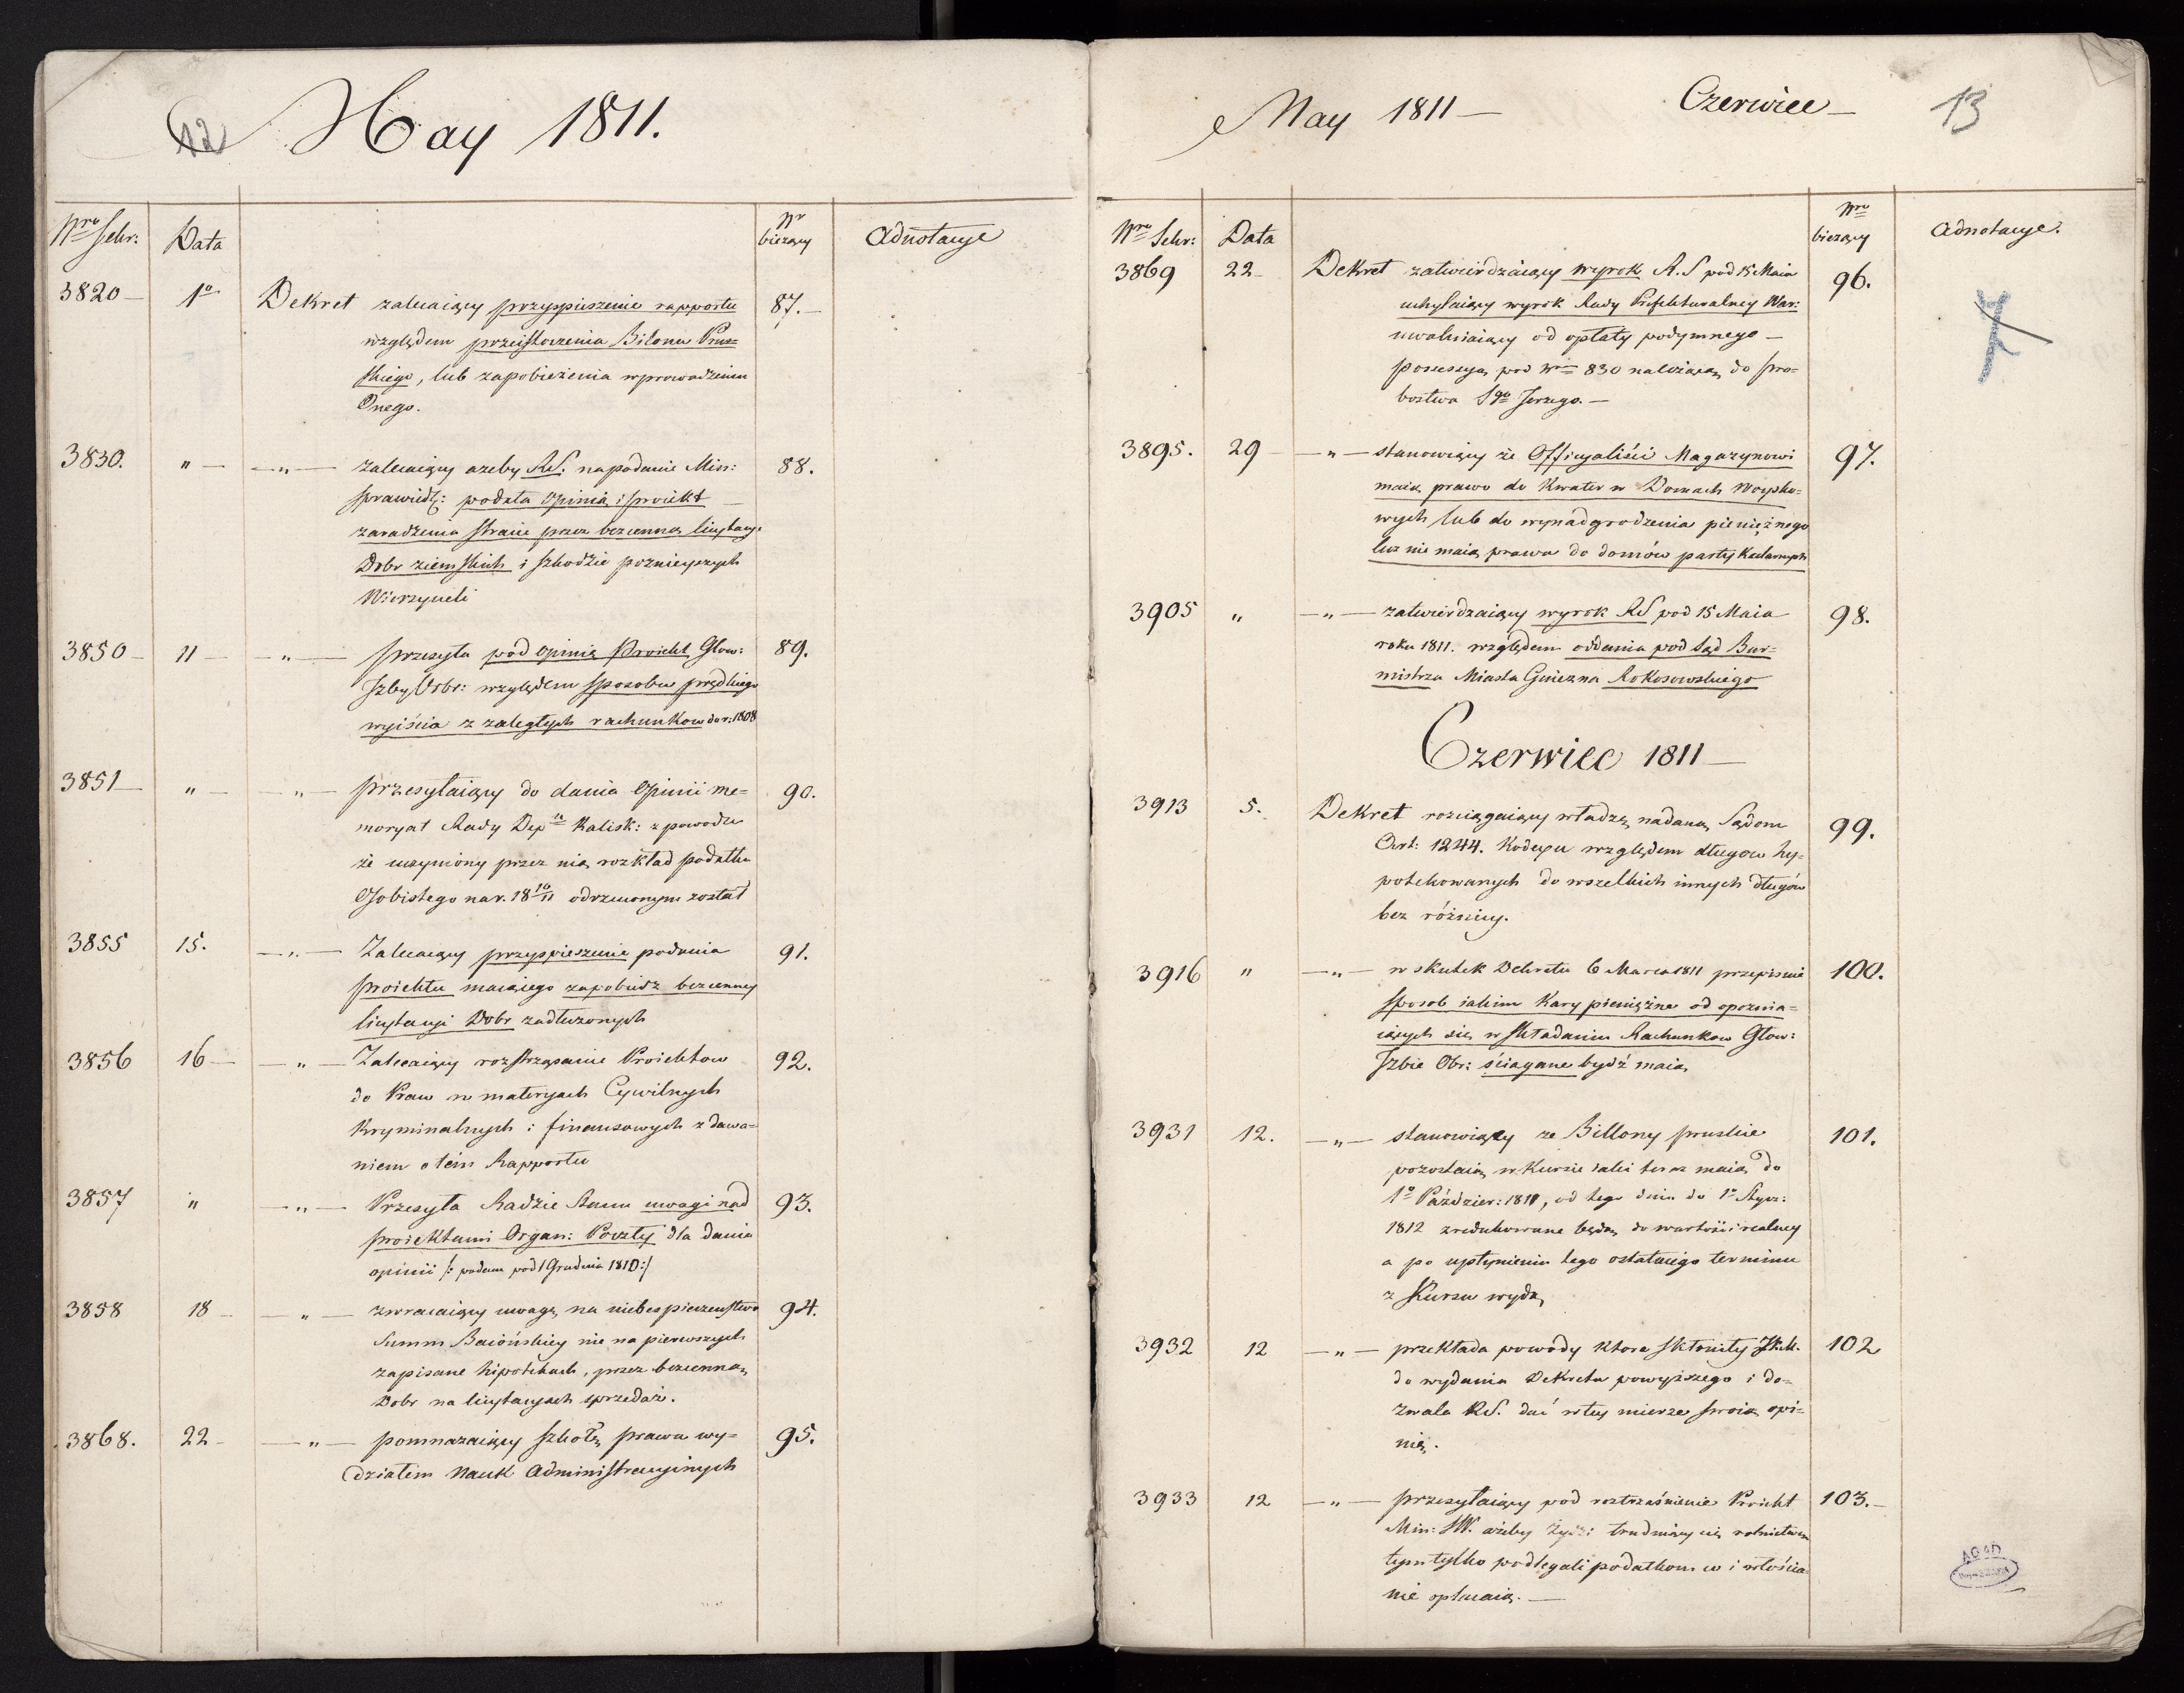 12
May 1811.
Nro Sekr:
Data
Nr bieżący
Adnotacye
3820 — 1o Dekret zalecaiący przyspieszenie rapportu 87. —
względem przeistoczenia Bilonu Prus=
skiego, lub zapobieżenia wprowadzeniu
Onego.
3830. " — — " — zalecaiący ażeby RS. na podanie Min: 88.
sprawiedl: podała Opinią i proiekt
zaradzenia stracie przez bezcenną licytacyę
Dobr ziemskich i szkodzie poznieyszych
Wierzycieli
3850 — 11 — — " — przesyła pod opinią Proiekt Glow: 89.
Izby Obr: względem sposobu prędkiego
wyiścia z zaległych rachunkow do r: 1808
3851 — " — — " — przesyłaiący do dania Opinii me= 90.
moryał Rady Dep. Kalisk: z powodu
że uczyniony przez nią rozkład podatku
Osobistego na r. 18 10/11 odrzuconym został
3855 15. — " — Zalecaiący przyspieszenie podania 91.
proiektu maiącego zapobiedz bezcenney
licytacyi Dobr zadłużonych
3856 16 — — " — Zalecaiący rozstrząsanie Proiektow 92.
do Praw w materyach Cywilnych
Kryminalnych i finansowych z dawa=
niem o tém Rapportu
3857 " — " — Przesyła Radzie Stanu uwagi nad 93.
proiektami Organ: Poczty dla dania
opinii /: podane pod 1 Grudnia 1810 :/
3858 18 — — " — zwracaiący uwagę na niebespieczeństwo 94.
Summ Baiońskiey nie na pierwszych
zapisane hipotekach, przez bezcenną
Dobr na licytacyach sprzedaż.
3868. 22 — — " — pomnażaiący szkołę prawa wy= 95.
działem Nauk Administracyinych
May 1811 —
Czerwiec —
13
Nro Sekr:
Data
Nro bieżący
Adnotacye.
3869 22 — Dekret zatwierdzaiący wyrok R.S pod 15 Maia 96.
uchylaiący wyrok Rady Prefekturalney War:
uwalniaiący od opłaty podymnego —
possessyą pod Nro 830 należącą do pro=
bostwa Sgo Jerzego. —
3895. 29 — " — stanowiący że Officyaliści Magazynowi 97.
maią prawo do Kwater w Domach Woysko=
wych lub do wynadgrodzenia pieniężnego
lecz nie maią prawa do domów partykularnych
3905 " — " — zatwierdzaiący wyrok RS pod 15 Maia 98.
roku 1811. względem oddania pod Sąd Bur=
mistrza Miasta Gniezna Rokosowskiego
Czerwiec 1811 —
3913 5. Dekret rozciągaiący władzę nadaną Sądom 99.
Art: 1244. Kodexu względem długow hy=
potekowanych do wszelkich innych długów
bez różnicy.
3916 " — " — w skutek Dekretu 6 Marca 1811 przepisuie 100.
sposob iakim Kary pieniężne od opoznia=
iących się w składaniu Rachunkow Glow:
Izbie Obr: ściągane bydź maią
3931 12. — " — stanowiący ze Billony pruskie 101.
pozostaią w Kursie iaki teraz maią do
1o Paździer: 1811, od tego dnia do 1o Stycz:
1812 zredukowane będą do wartości realney
a po upłynieniu tego ostatniego terminu
z Kursu wyidą
3932 12 — " — przekłada powody ktore skłoniły JKM. 102
do wydania Dekretu powyższego i do=
zwala RS. dać w tey mierze swoią opi=
nią.
3933 12 — " — przesyłaiący pod roztrząśnienie Proiekt 103. —
Min: SW. ażeby Żydzi trudniący się rolnictwem
tym tylko podlegali podatkom co i włościa
nie opłacaią. —
AGAD